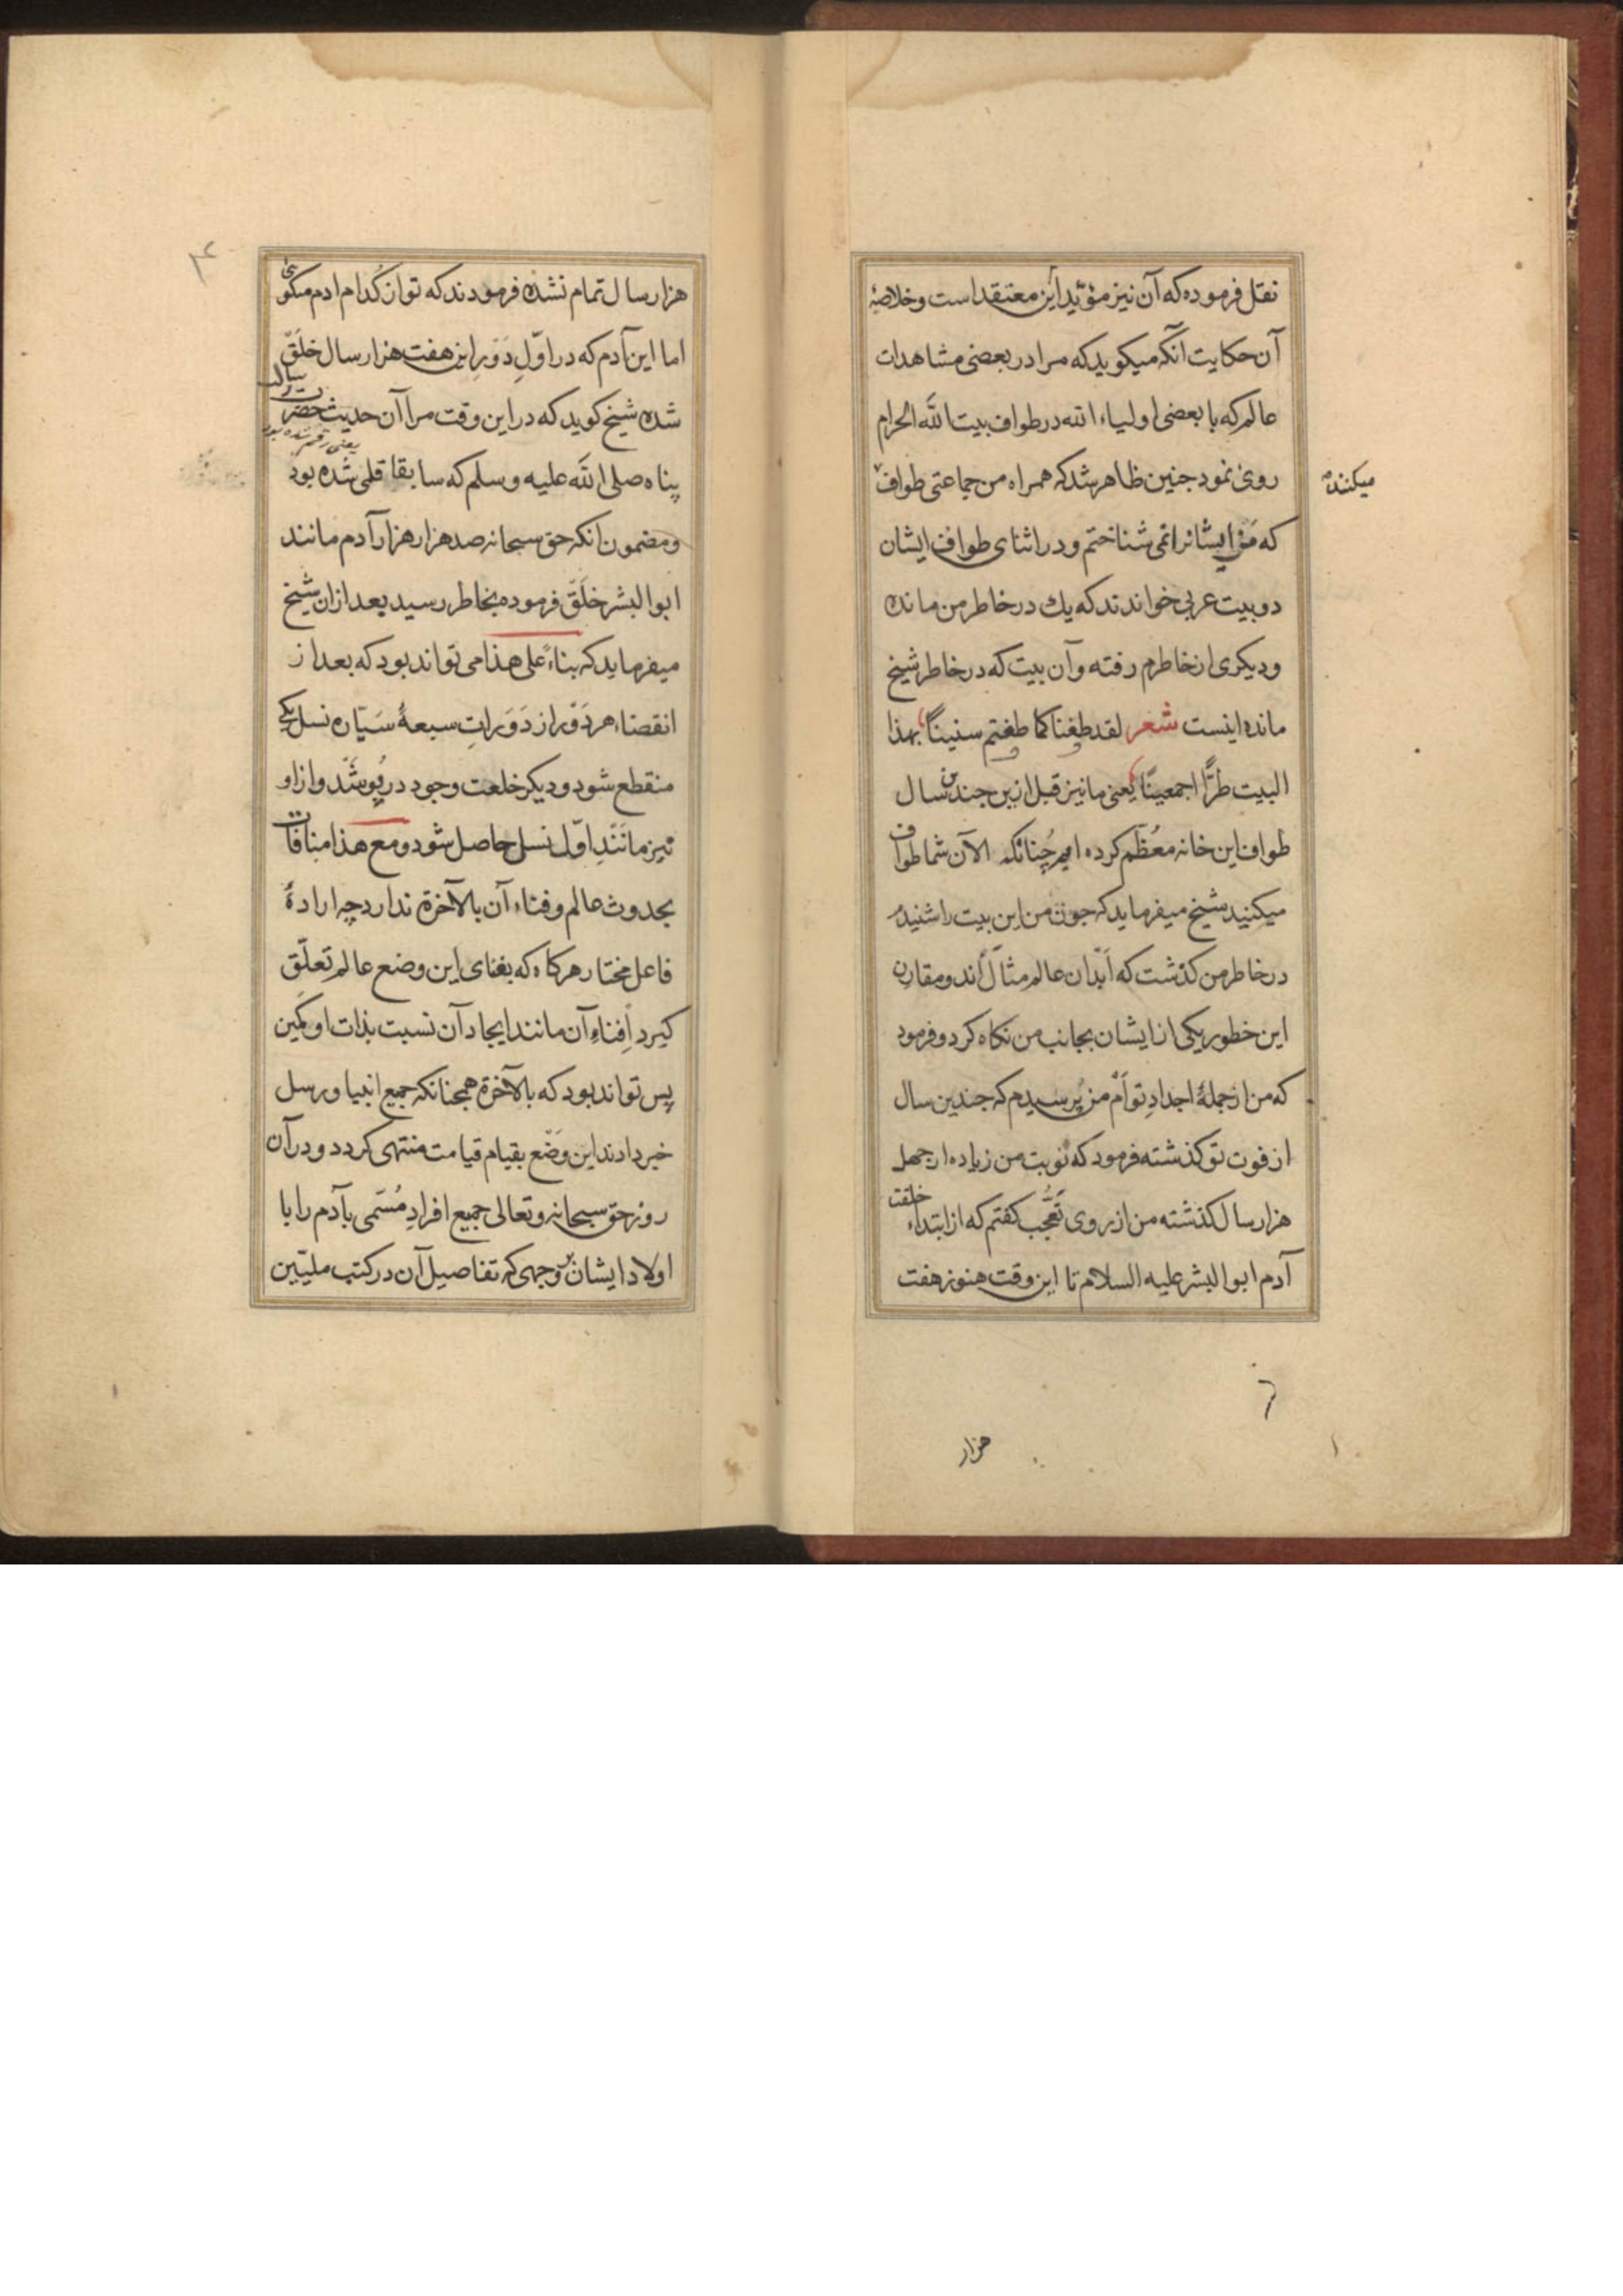 نقل فرموده که آن نیز مؤید این معتقد است و خلاصهٔ
آن حکایت آنکه میکوید که مرا در بعضی مشاهدات
عالم که با بعضی اولیاء الله در طواف بیت الله الحرام
روی نمود جنین ظاهر شد که همراه من جماعتی طواف
میکنند
که من ایشانرا نمی شناختم و در اثنای طواف ایشان
دو بیت عربی خواندند که یك در خاطر من مانده
و دیکری از خاطرم رفته و آن بیت که در خاطر شیخ
مانده اینست شعر لقد طفنا کما طفتم سنینًا بهذا
البیت طرًّا اجمعینًا یعنی ما نیز قبل ازین جندین سال
طواف این خانه معُظّم کرده ایم چُنانکه الآن شما طواف
میکنید شیخ میفرماید که جون من این بیت را شنیدم
در خاطر من کذشت که اَبْدان عالم مثال اند و مقارن
این خطور یکی از ایشان بجانب من نکاه کرد و فرمود
که من از جملهٔ اجدادِ تو اَم من پُرسیدم که جندین سال
از فوت تو کذشته فرمود که نوبت من زیاده از جهل
هزار سال کذشته من از روی تَعَجُّب کفتم که از ابتداء خلقت
آدم ابو البشر علیه السلام تا این وقت هنوز هفت
هزار
٦
هزار سال تمام نشده فرمودند که تو از کُدام ادم میکوئی
اما این آدم که در اوّلِ دَوْرِ این هفت هزار سال خَلَقْ
شده شیخ کوید که در این وقت مرا آن حدیث حضرت رسالت
پناه صلی الله علیه وسلم که سابقا قلمی شده بود
یعنی رقم شده بود
و مضمون انکه حق سبحانه صد هزار هزار آدم مانند
ابو البشر خَلَقْ فرموده بخاطر رسید بعد از ان شیخ
میفرماید که بناءً علی هذا می تواند بود که بعد از
انقضاء هر دَوْر از دَوَراتِ سبعهٔ سَیّاره نسل یکی
منقطع شود و دیکر خلعت وجود در پُوشَد و از او
نیز مانَنْدِ اوّل نسل حاصل شود و مع هذا منافات
بحدوث عالم و فناء آن بالآخرة ندارد چه ارادهٔ
فاعل مختار هر کاه که بفنای این وضع عالم تعلّق
کیرد اِفناءِ آن مانند ایجاد آن نسبت بذات او کمین
پس تواند بود که بالآخرة همجنانکه جمیع انبیا و رسل
خبر دادند این وَضْع بقیام قیامت منتهی کردد و در آن
روز حق سبحانه و تعالی جمیع افرادِ مُسَمّی بآدم را با
اولاد ایشان بر وجهی که تفاصیل آن در کتب ملیّین